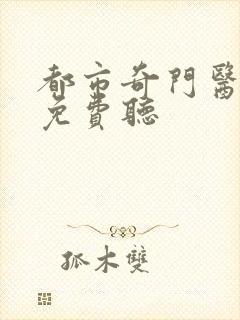 都市奇門醫
免費聽
孤木雙